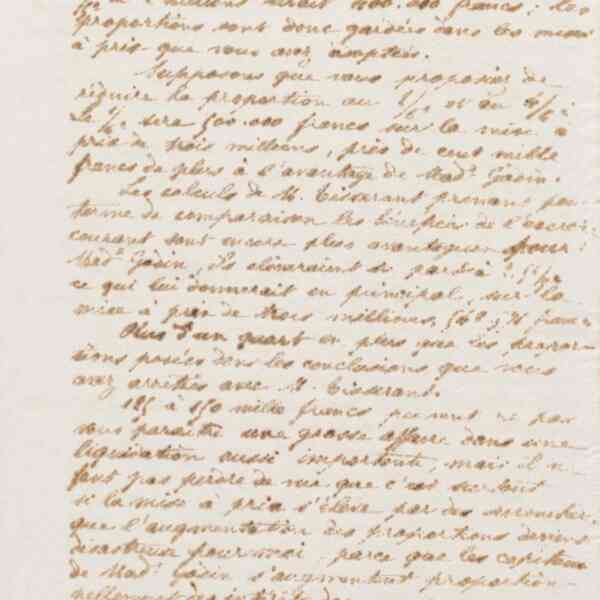 de 2 millions serait 400.000 francs ; les
proportions sont donc gardées dans les mises
à prix que vous avez acceptées.
Supposons que vous proposiez de
réduire la proportion au 1/6e et au 4/6e
Le 1/6e sera 500.000 francs sur la mise à
prix de trois millions, près de cent mille
francs de plus à l'avantage de Made Godin.
Les calculs de M. Tisserant prenant pour
terme de comparaison les bénéfices de l'exercice
courant sont encore plus avantageux pour
Made Godin, ils élèveraient sa part à
ce qui lui donnerait en principal, sur la
mise à prix de trois millions, francs
Plus d'un quart en plus que les propor-
tions posées dans les conclusions que vous
avez arrêtées avec M. Tisserant.
125 à 150 mille francs peuvent ne pas
vous paraître une grosse affaire dans une
liquidation aussi importante, mais il ne
faut pas perdre de vue que c'est surtout
si la mise à prix s'élève par des surenchères
que l'augmentation des proportions devient
désastreuse pour moi parce que les capitaux
de Made Godin s'augmentent proportion-
nellement des intérêts des